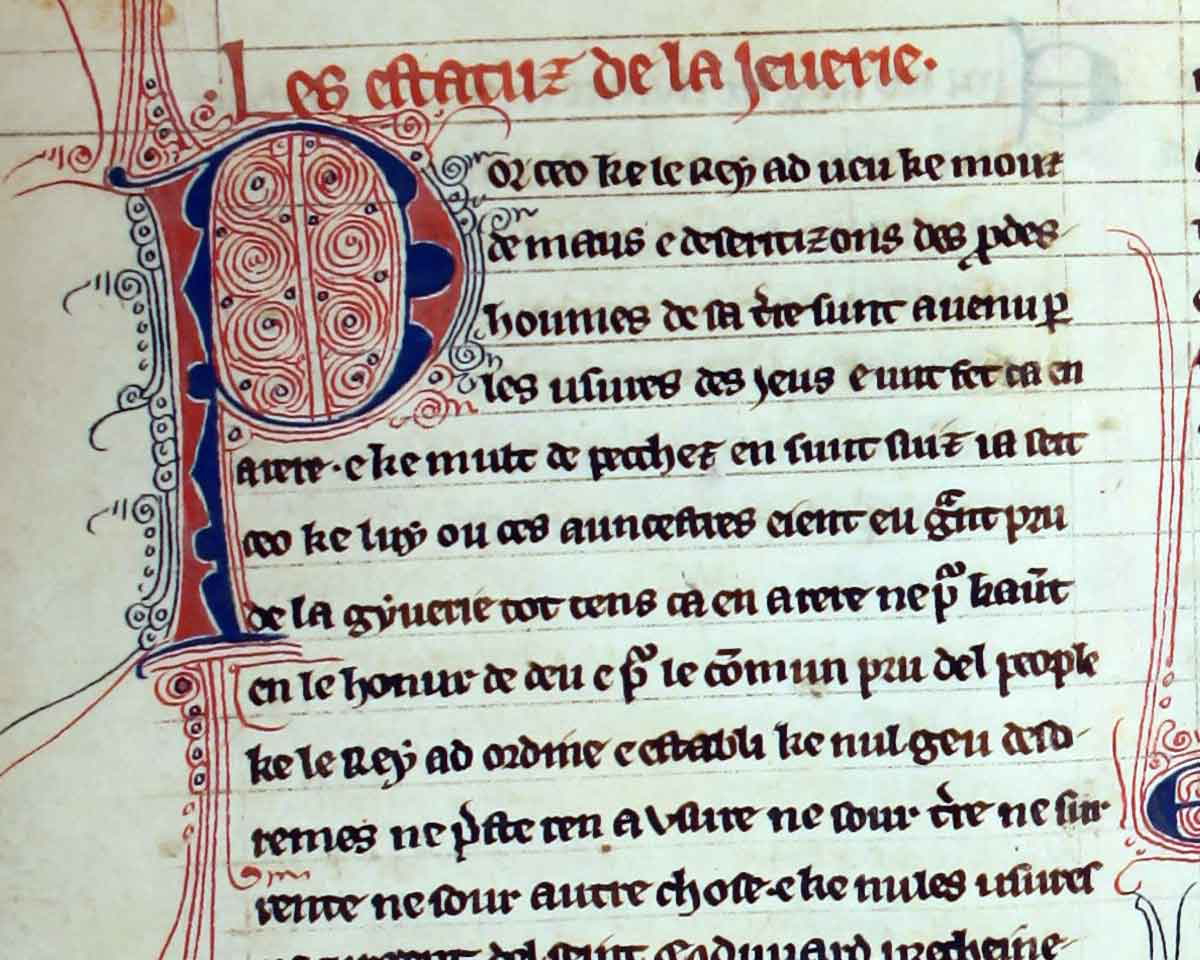 Les estatuz de la Jeuerie.
Por ceo ke le Rey ad ueu ke mouz
de maus e deseritizons des pdes
houmes de sa tre sunt auenu p
les usures des Jeus e unt fet ca en
arere. e ke mult de pecchez en sunt siuz ia seit
ceo ke luy ou ces auncestres eient eu gnt pru
de la gyuerie tot tens ca en arere ne p kaut
en le honur de deu e p le comun pru del people
ke le Rey ad ordine e establi ke nul geu deso
remes ne pste ren a Vsure ne sour tre ne sur
rente ne sour autre chose. e ke nules usures
del seint Edward